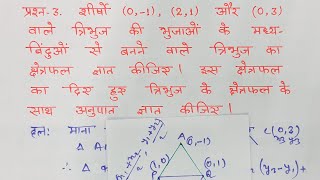 प्रश्न-3. शीर्षों (0,-1), (2,1) और (0,3)
वाले त्रिभुज की भुजाओं के मध्य-
बिंदुओं से बनने वाले त्रिभुज का
क्षेत्रफल ज्ञात कीजिए। इस क्षेत्रफल
का दिए हुए त्रिभुज के क्षेत्रफल के
साथ अनुपात ज्ञात कीजिए।
हल: माना C(0,3)
x3 y3
A(0,-1)
(1,0) (0,1)
(y3-y1)+